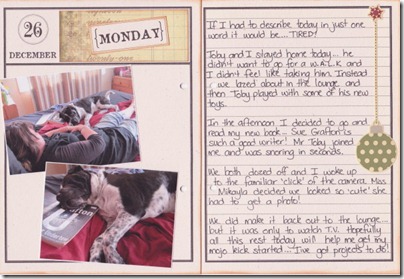 26
DECEMBER
{MONDAY}
If I had to describe today in just one
word it would be....TIRED!
Toby and I stayed home today... he
didn't want to go for a W.A.L.K and
I didn't feel like taking him. Instead
we lazed about in the lounge and
then Toby played with some of his new
toys.
In the afternoon I decided to go and
read my new book - Sue Grafton is
such a good writer! Mr Toby joined
me and was snoring in seconds.
We both dozed off and I woke up
to the familiar 'click' of the camera. Miss
Mikayla decided we looked so 'cute' she
had to get a photo!
We did make it back out to the lounge...
but it was only to watch T.V. Hopefully
all this rest today will help me get my
mojo kick started... I've got projects to do!